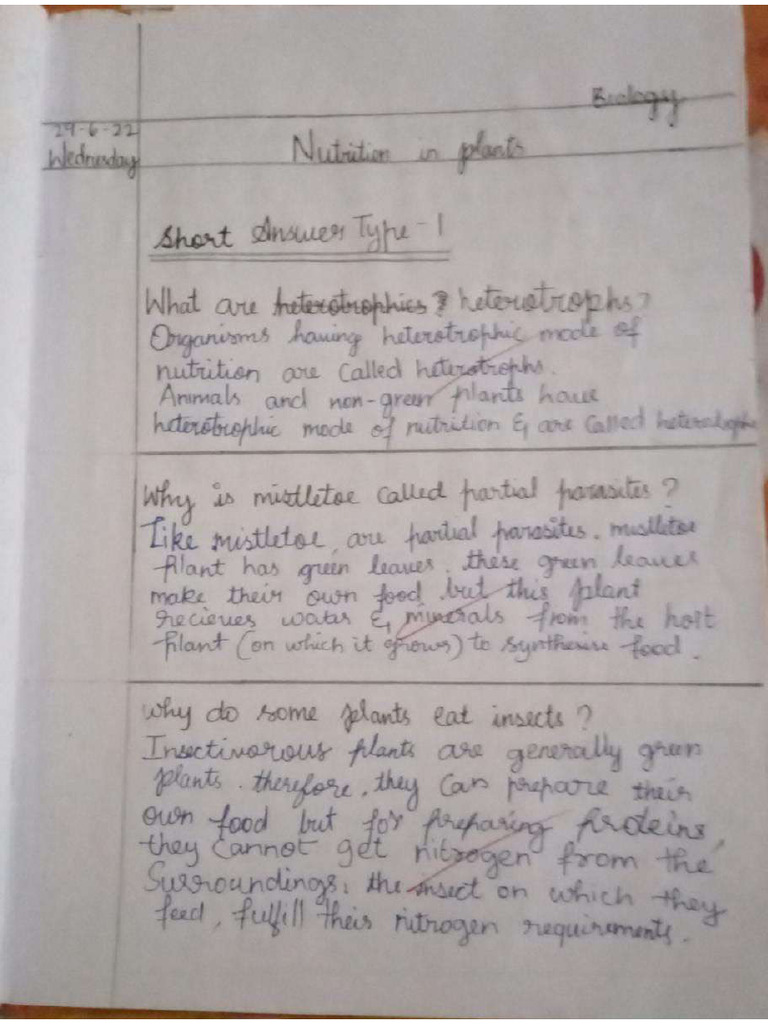 Biology
29-6-22
Wednesday
Nutrition in plants
Short Answer Type-1
What are heterotrophics? heterotrophs?
Organisms having heterotrophic mode of
nutrition are called heterotrophs.
Animals and non-green plants have
heterotrophic mode of nutrition & are called
Why is mistletoe called partial parasites?
Like mistletoe, are partial parasites. mistletoe
plant has green leaves. these green leaves
make their own food but this plant
recieves water & minerals from the host
plant (on which it grows) to synthesise food.
why do some plants eat insects?
Insectivorous plants are generally green
plants. therefore, they can prepare their
own food but for preparing proteins,
they cannot get nitrogen from the
surroundings. the insect on which they
feed, fulfill their nitrogen requirements.